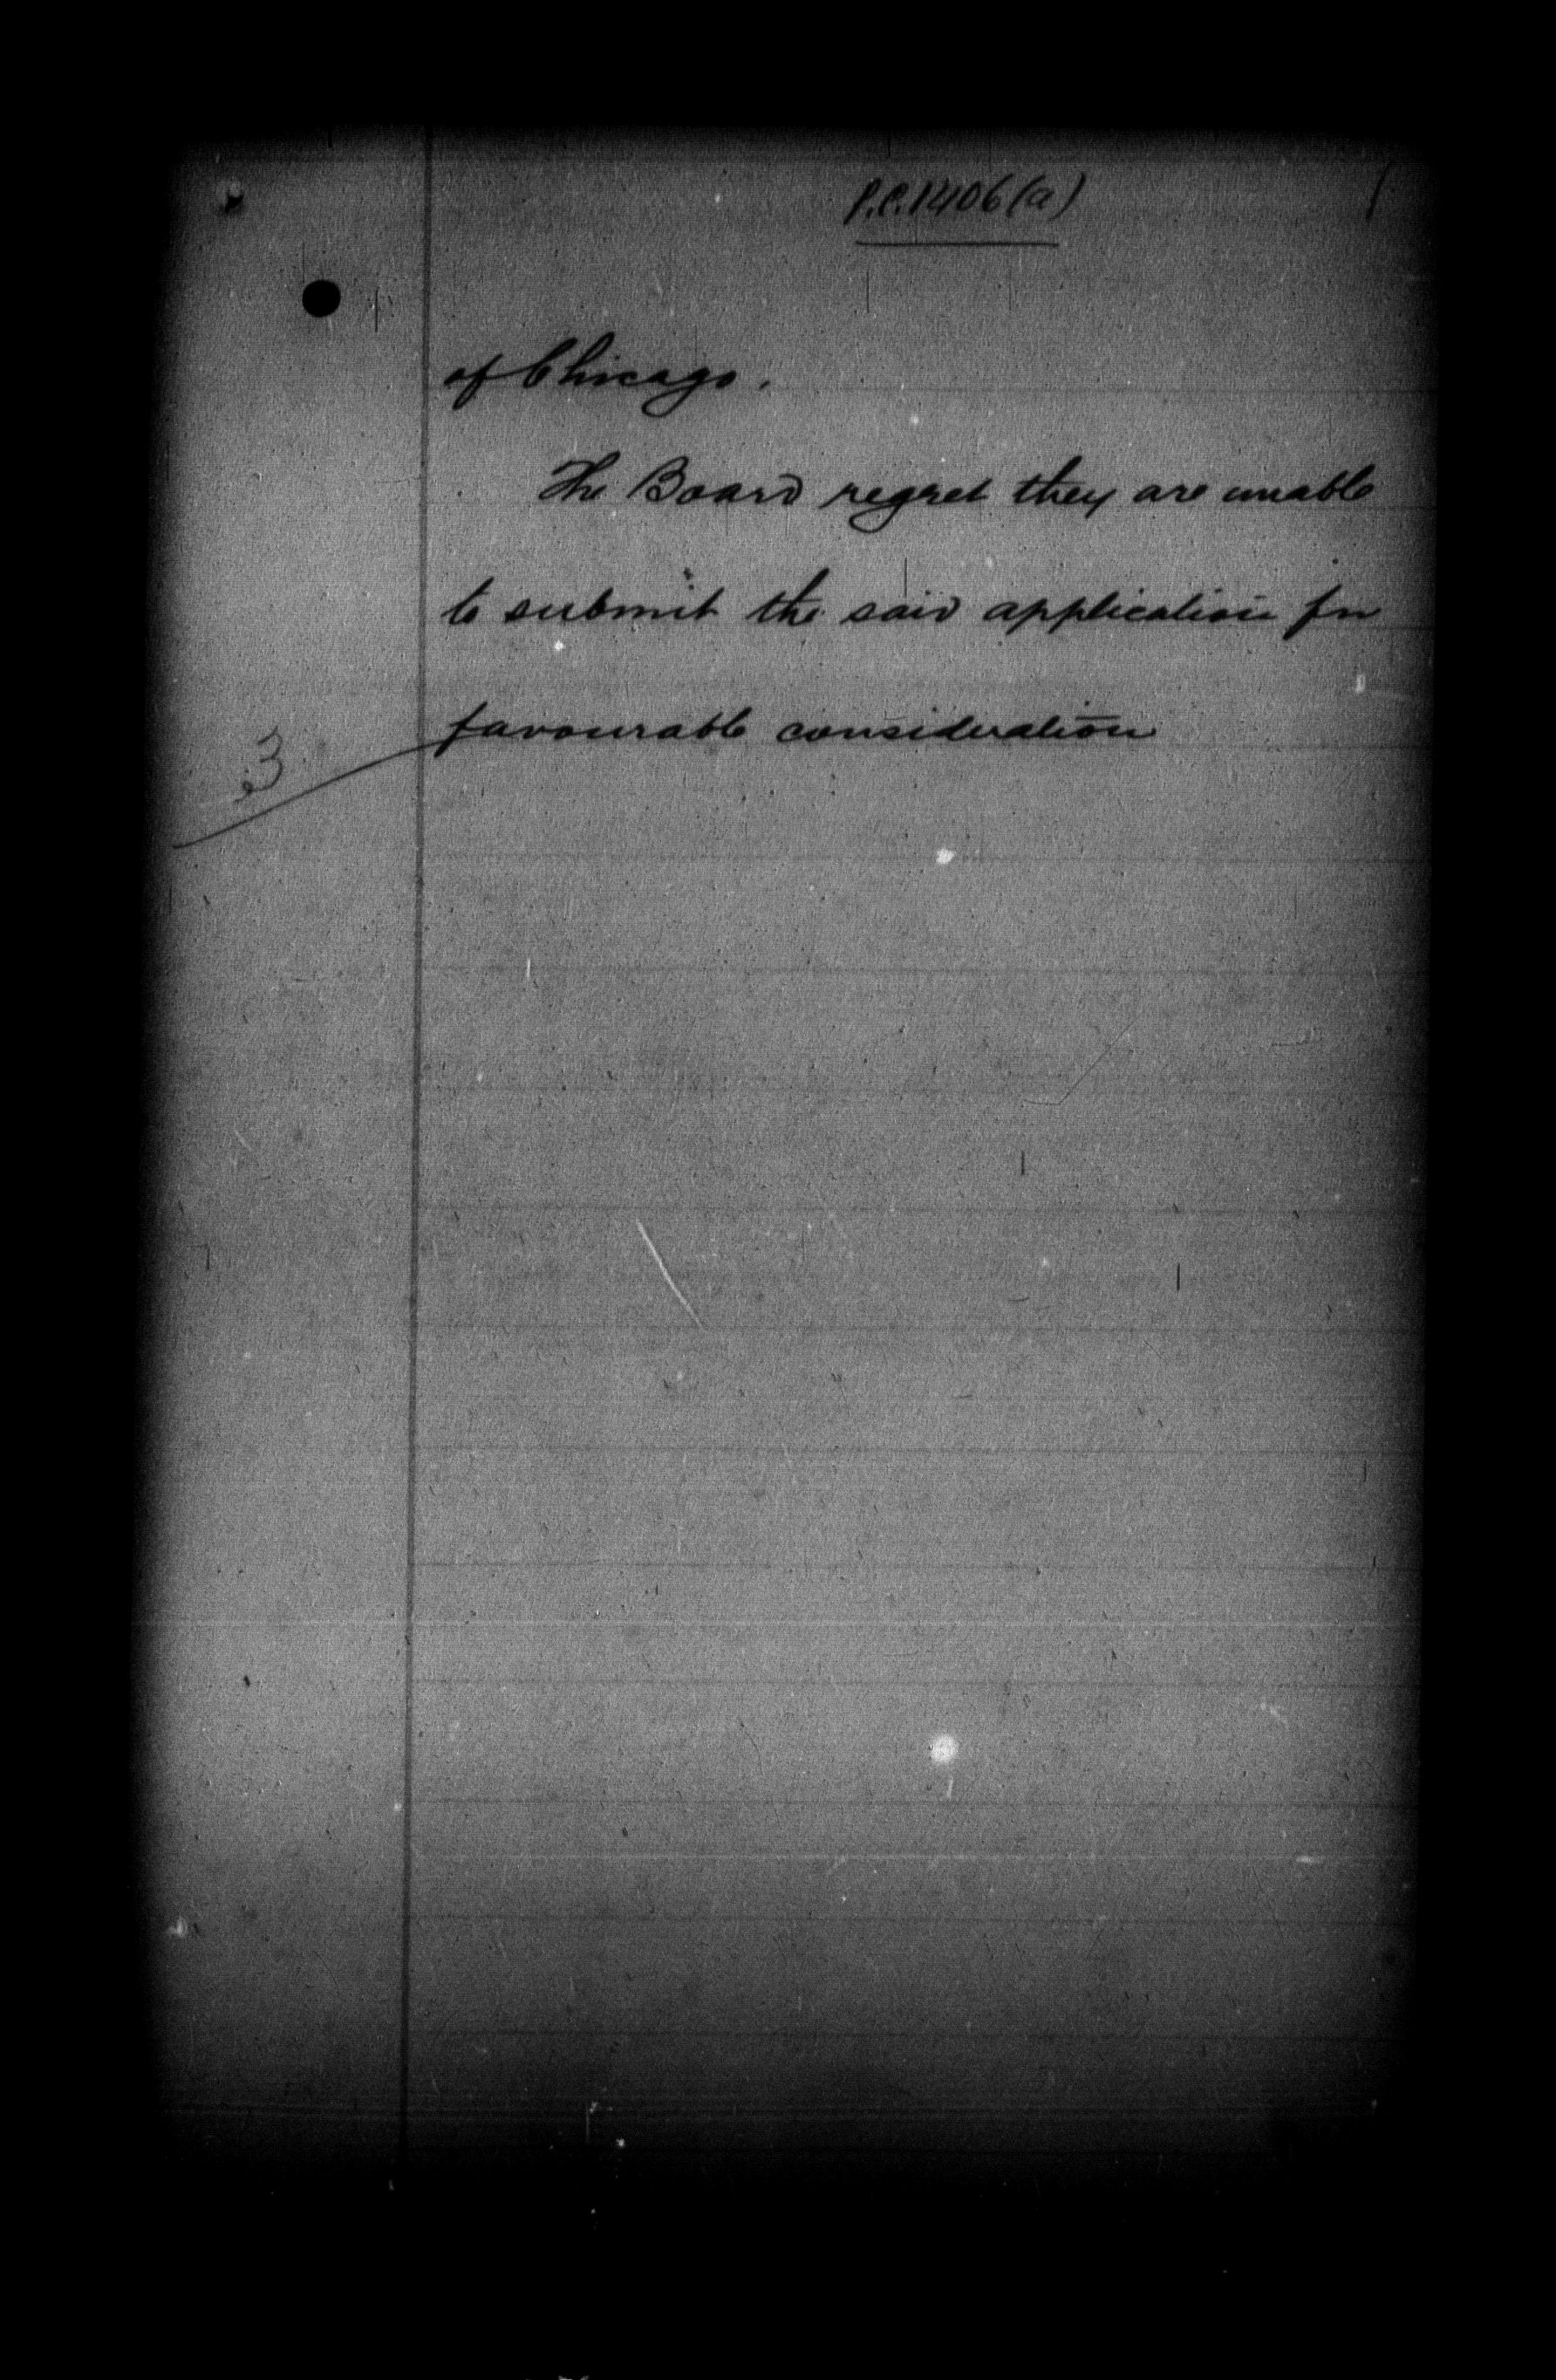 P.C. 1406 (a)
of Chicago.
The Board regret they are unable
to submit the said application for
favourable consideration
3